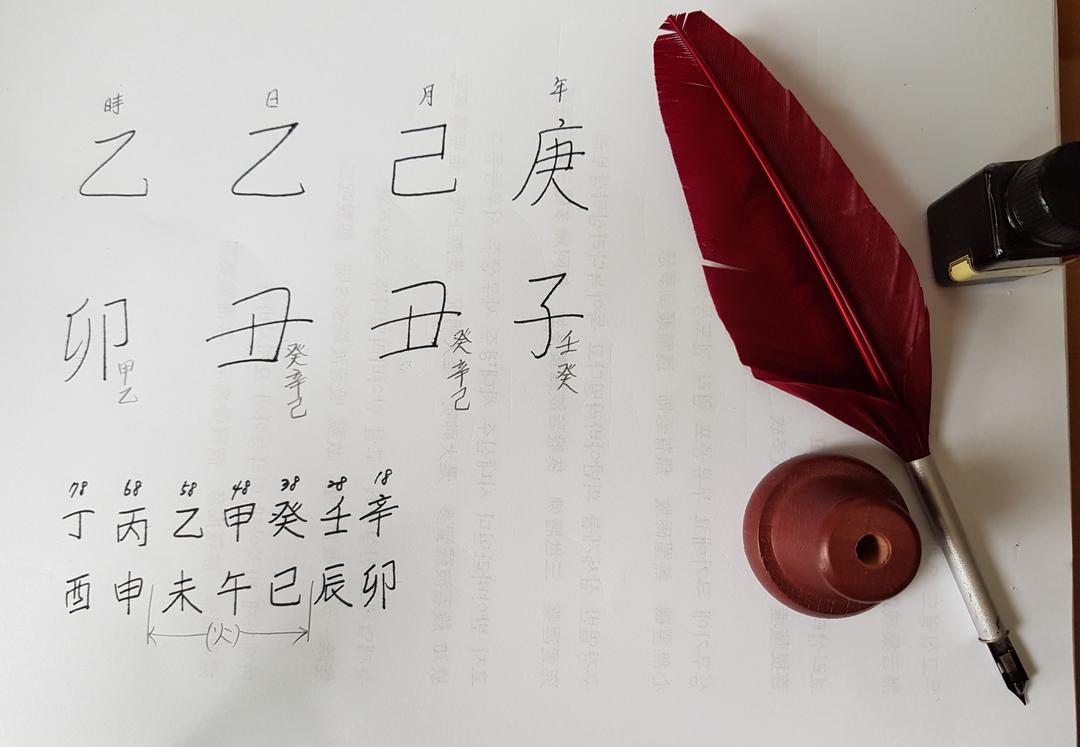 時 日 月 年
乙 乙 己 庚
卯 丑 丑 子
甲乙 癸辛己 癸辛己 壬癸
78 68 58 48 38 28 18
丁 丙 乙 甲 癸 壬 辛
酉 申 未 午 巳 辰 卯
(火)